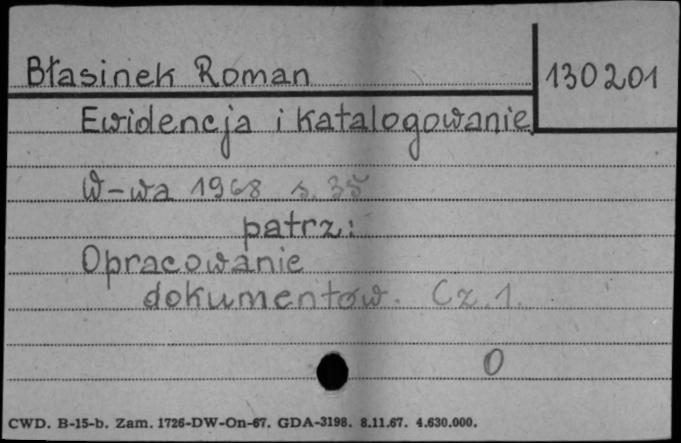 Błasinek Roman
130201
Ewidencja i katalogowanie
W-wa 1968 s. 35
patrz:
Opracowanie
dokumentów. Cz. 1.
0
CWD. B-15-b. Zam. 1726-DW-On-67. GDA-3198. 8.11.67. 4.630.000.